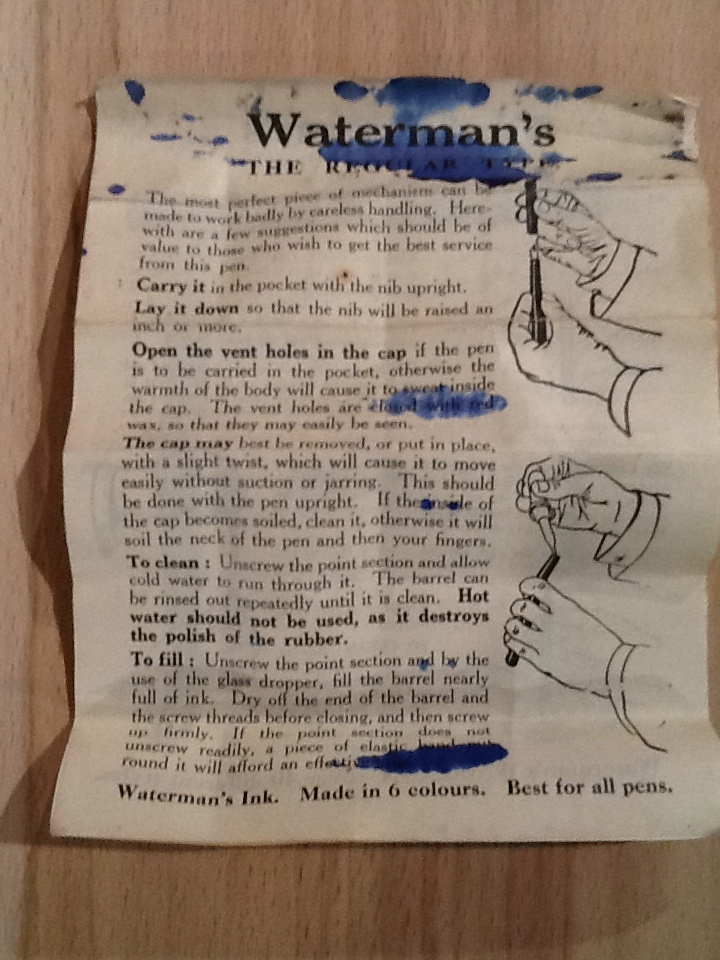 Waterman's
"THE REGULAR TYPE"
The most perfect piece of mechanism can be
made to work badly by careless handling. Here-
with are a few suggestions which should be of
value to those who wish to get the best service
from this pen.
Carry it in the pocket with the nib upright.
Lay it down so that the nib will be raised an
inch or more.
Open the vent holes in the cap if the pen
is to be carried in the pocket, otherwise the
warmth of the body will cause it to sweat inside
the cap. The vent holes are closed with red
wax, so that they may easily be seen.
The cap may best be removed, or put in place,
with a slight twist, which will cause it to move
easily without suction or jarring. This should
be done with the pen upright. If the inside of
the cap becomes soiled, clean it, otherwise it will
soil the neck of the pen and then your fingers.
To clean : Unscrew the point section and allow
cold water to run through it. The barrel can
be rinsed out repeatedly until it is clean. Hot
water should not be used, as it destroys
the polish of the rubber.
To fill : Unscrew the point section and by the
use of the glass dropper, fill the barrel nearly
full of ink. Dry off the end of the barrel and
the screw threads before closing, and then screw
up firmly. If the point section does not
unscrew readily, a piece of elastic band put
round it will afford an effective
Waterman's Ink. Made in 6 colours. Best for all pens.